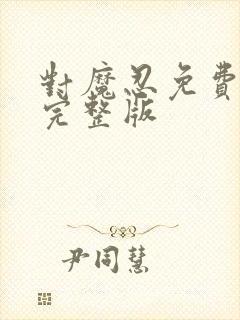 對魔忍免費
完整版
尹同慧